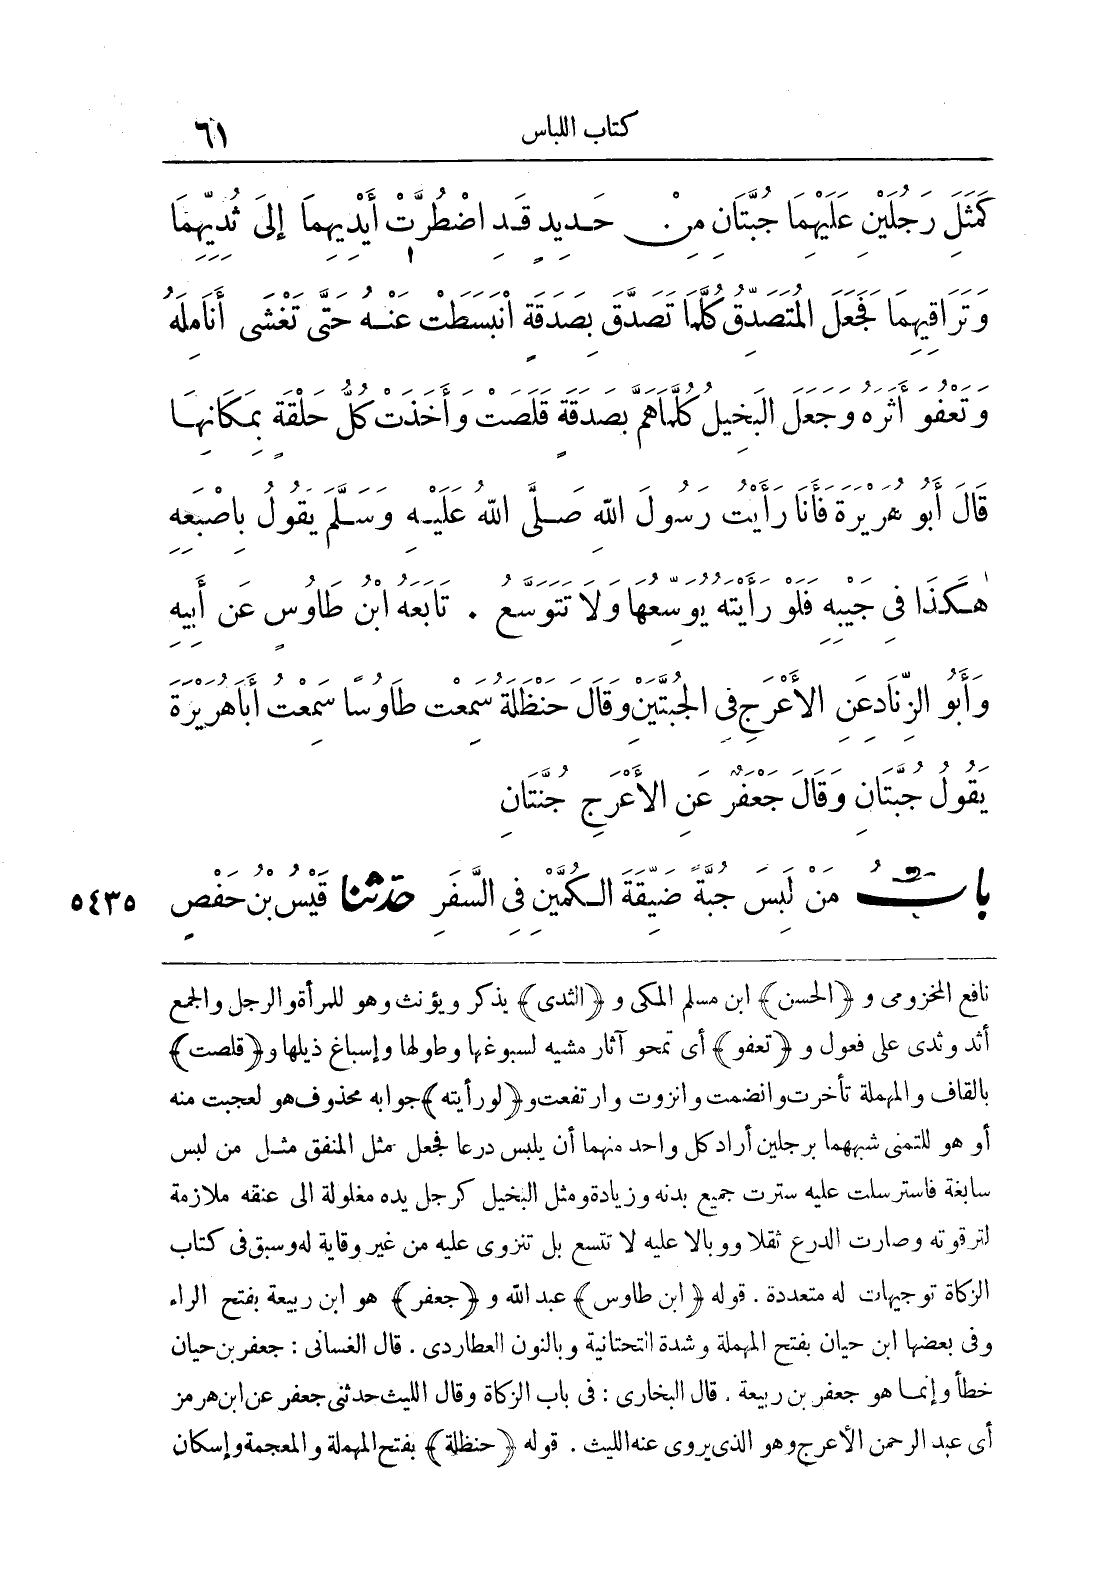 كتاب اللباس ٦١
كَمَثَلِ رَجُلَيْنِ عَلَيْهِمَا جُبَّتَانِ مِنْ حَدِيدٍ قَدِ اضْطُرَّتْ أَيْدِيهِمَا إِلَى ثُدِيِّهِمَا
وَتَرَاقِيهِمَا فَجَعَلَ الْمُتَصَدِّقُ كُلَّمَا تَصَدَّقَ بِصَدَقَةٍ انْبَسَطَتْ عَنْهُ حَتَّى تَغْشَى أَنَامِلَهُ
وَتَعْفُوَ أَثَرَهُ وَجَعَلَ الْبَخِيلُ كُلَّمَا هَمَّ بِصَدَقَةٍ قَلَصَتْ وَأَخَذَتْ كُلُّ حَلْقَةٍ بِمَكَانِهَا
قَالَ أَبُو هُرَيْرَةَ فَأَنَا رَأَيْتُ رَسُولَ اللهِ صَلَّى اللهُ عَلَيْهِ وَسَلَّمَ يَقُولُ بِإِصْبَعِهِ
هٰكَذَا فِي جَيْبِهِ فَلَوْ رَأَيْتَهُ يُوَسِّعُهَا وَلَا تَتَوَسَّعُ . تَابَعَهُ ابْنُ طَاوُسٍ عَنْ أَبِيهِ
وَأَبُو الزِّنَادِ عَنِ الْأَعْرَجِ فِي الْجُبَّتَيْنِ وَقَالَ حَنْظَلَةُ سَمِعْتُ طَاوُسًا سَمِعْتُ أَبَا هُرَيْرَةَ
يَقُولُ جُبَّتَانِ وَقَالَ جَعْفَرٌ عَنِ الْأَعْرَجِ جُنَّتَانِ
بابُ مَنْ لَبِسَ جُبَّةً ضَيِّقَةَ الْكُمَّيْنِ فِي السَّفَرِ حَدَّثَنَا قَيْسُ بْنُ حَفْصٍ ٥٤٣٥
نافع المخزومى و ﴿الحسن﴾ ابن مسلم المكى و ﴿الثدى﴾ يذكر ويؤنث وهو للمرأة والرجل والجمع
أثد وثدى على فعول و ﴿تعفو﴾ أى تمحو آثار مشيه لسبوغها وطولها وإسباغ ذيلها و﴿قلصت﴾
بالقاف والمهملة تأخرت وانضمت وانزوت وارتفعت و﴿لورأيته﴾ جوابه محذوف هو لعجبت منه
أو هو للتمنى شبههما برجلين أراد كل واحد منهما أن يلبس درعا فجعل مثل المنفق مثل من لبس
سابغة فاسترسلت عليه سترت جميع بدنه وزيادة ومثل البخيل كرجل يده مغلولة الى عنقه ملازمة
لترقوته وصارت الدرع ثقلا ووبالا عليه لا تتسع بل تنزوى عليه من غير وقاية له وسبق فى كتاب
الزكاة توجيهات له متعددة . قوله ﴿ابن طاوس﴾ عبد الله و ﴿جعفر﴾ هو ابن ربيعة بفتح الراء
وفى بعضها ابن حيان بفتح المهملة وشدة التحتانية وبالنون العطاردى . قال الغسانى : جعفر بن حيان
خطأ وإنما هو جعفر بن ربيعة . قال البخارى : فى باب الزكاة وقال الليث حدثنى جعفر عن ابن هرمز
أى عبد الرحمن الأعرج وهو الذى يروى عنه الليث . قوله ﴿حنظلة﴾ بفتح المهملة والمعجمة وإسكان